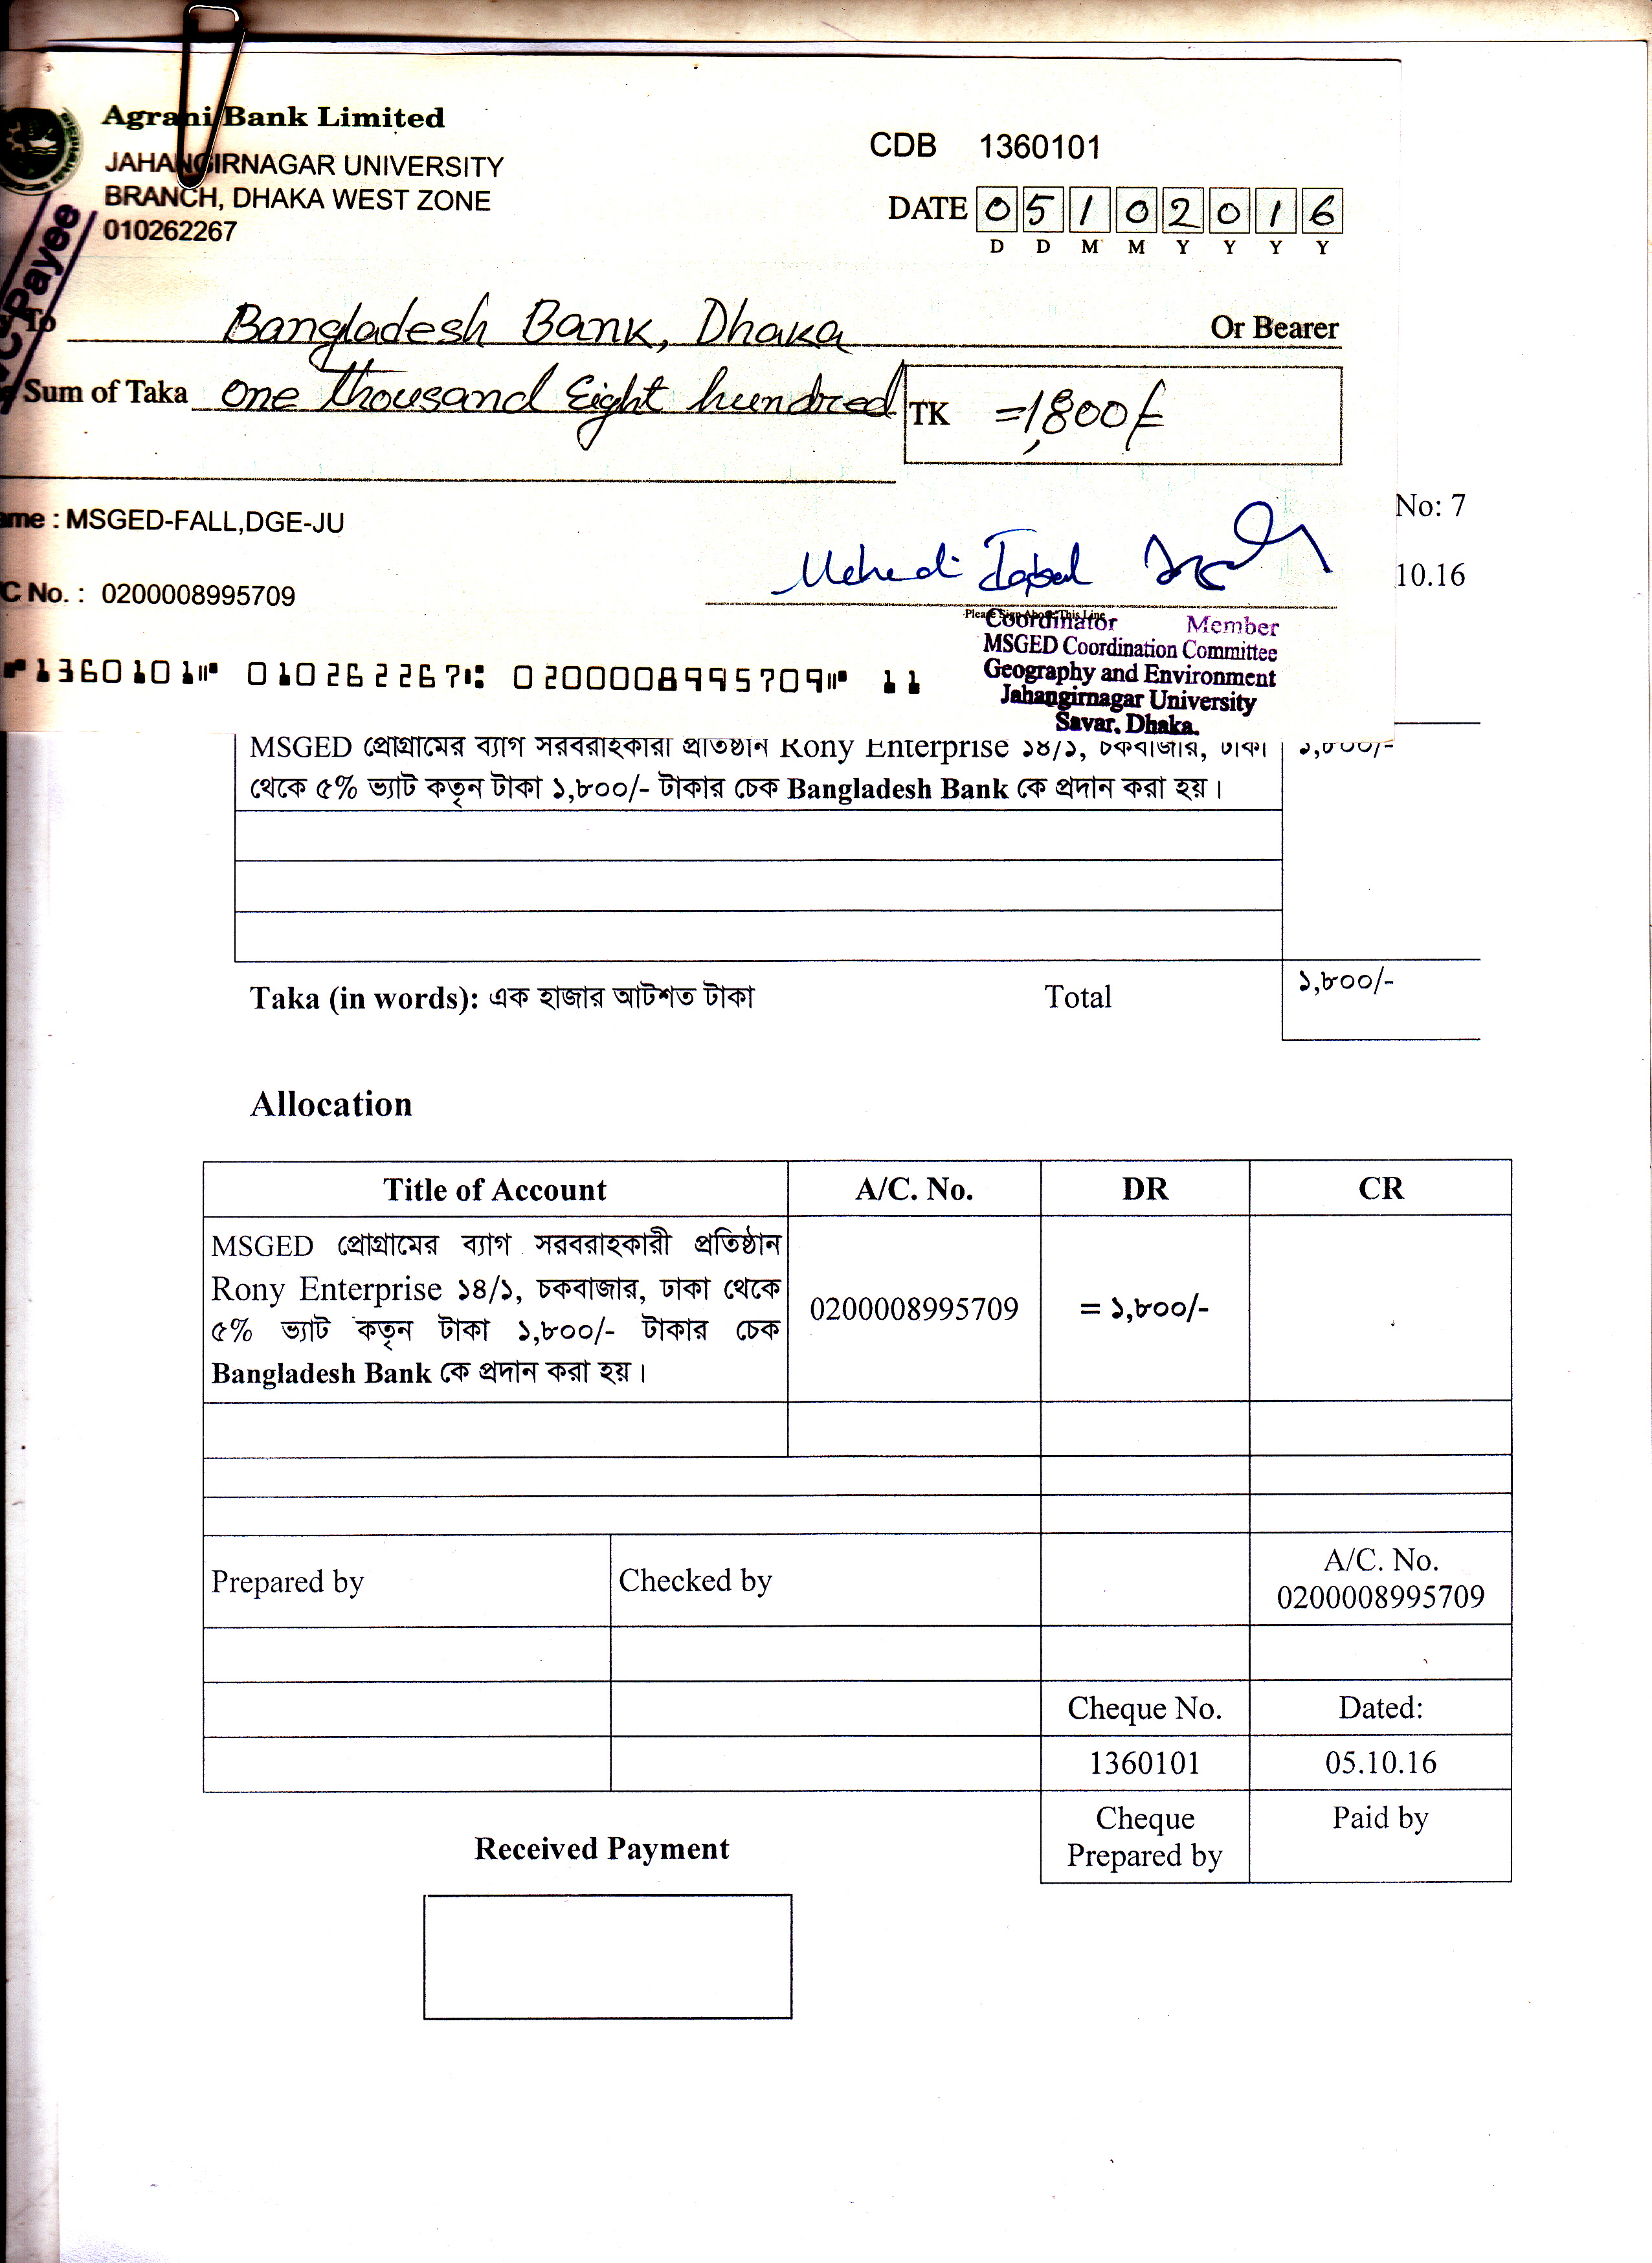 Agrani Bank Limited
JAHANGIRNAGAR UNIVERSITY
BRANCH, DHAKA WEST ZONE
010262267
CDB 1360101
DATE 05102016
D D M M Y Y Y Y
Payee
To Bangladesh Bank, Dhaka Or Bearer
Sum of Taka One thousand Eight hundred TK =1,800/=
MSGED-FALL,DGE-JU
No: 7
10.16
C No. : 0200008995709
Mehedi Iqbal
Please Sign Above This Line
Coordinator Member
MSGED Coordination Committee
Geography and Environment
Jahangirnagar University
Savar, Dhaka.
1360101 010262267 0200008995709 11
MSGED প্রোগ্রামের ব্যাগ সরবরাহকারী প্রতিষ্ঠান Rony Enterprise ১৪/১, চকবাজার, ঢাকা ১,৮০০/-
থেকে ৫% ভ্যাট কতৃন টাকা ১,৮০০/- টাকার চেক Bangladesh Bank কে প্রদান করা হয়।
Taka (in words): এক হাজার আটশত টাকা Total ১,৮০০/-
Allocation
Title of Account A/C. No. DR CR
MSGED প্রোগ্রামের ব্যাগ সরবরাহকারী প্রতিষ্ঠান
Rony Enterprise ১৪/১, চকবাজার, ঢাকা থেকে
৫% ভ্যাট কতৃন টাকা ১,৮০০/- টাকার চেক
Bangladesh Bank কে প্রদান করা হয়।
0200008995709 = ১,৮০০/-
Prepared by Checked by A/C. No.
0200008995709
Cheque No. Dated:
1360101 05.10.16
Cheque Paid by
Prepared by
Received Payment